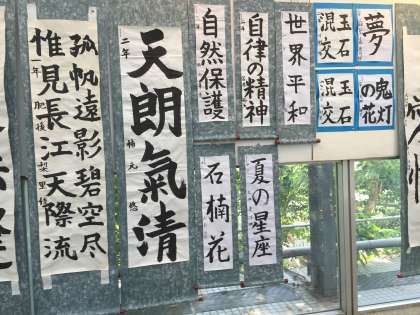 孤帆遠影碧空尽
惟見長江天際流
天朗氣清
二年
自然保護
自律の精神
世界平和
玉石
混交
夢
玉石
混交
鬼灯
の花
石楠花
夏の星座